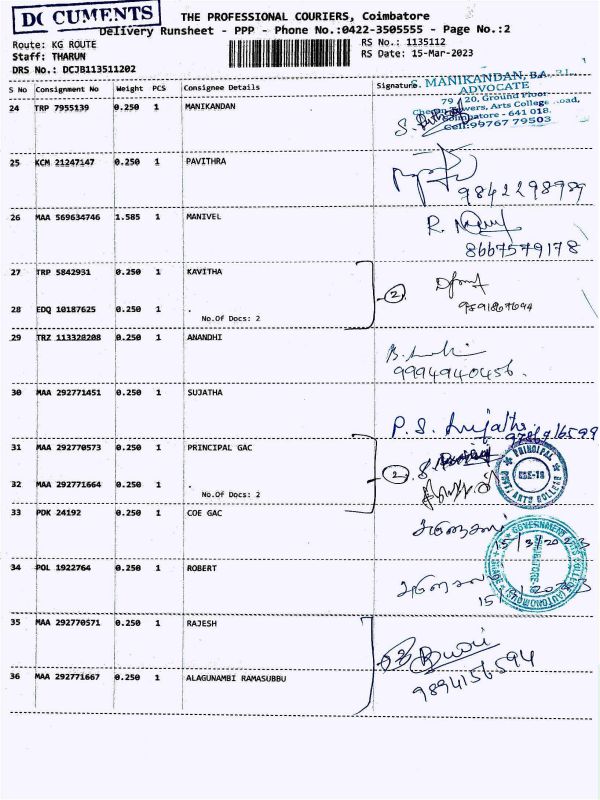 DOCUMENTS
THE PROFESSIONAL COURIERS, Coimbatore
Delivery Runsheet - PPP - Phone No.:0422-3505555 - Page No.:2
Route: KG ROUTE
RS No.: 1135112
Staff: THARUN
RS Date: 15-Mar-2023
DRS No.: DCJB113511202
S No Consignment No Weight PCS Consignee Details Signature
S. MANIKANDAN, B.A., B.L.,
ADVOCATE
79, 20, Ground Floor
Towers, Arts College Road,
Coimbatore - 641 018.
Cell:99767 79503
24 TRP 7955139 0.250 1 MANIKANDAN
25 KCM 21247147 0.250 1 PAVITHRA
9842298989
26 MAA 569634746 1.585 1 MANIVEL
R.
8667579178
27 TRP 5842931 0.250 1 KAVITHA
2
28 EDQ 10187625 0.250 1 .
No.Of Docs: 2
29 TRZ 113328208 0.250 1 ANANDHI
9994940456.
30 MAA 292771451 0.250 1 SUJATHA
P. S. Sujatha
9786916599
31 MAA 292770573 0.250 1 PRINCIPAL GAC
2
PRINCIPAL
CBE-18
GOVT. ARTS COLLEGE
32 MAA 292771664 0.250 1 .
No.Of Docs: 2
33 PDK 24192 0.250 1 COE GAC
15/3/2023
GOVERNMENT ARTS COLLEGE (AUTONOMOUS)
COIMBATORE
34 POL 1922764 0.250 1 ROBERT
35 MAA 292770571 0.250 1 RAJESH
9894156594
36 MAA 292771667 0.250 1 ALAGUNAMBI RAMASUBBU